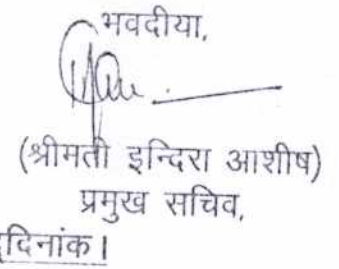 भवदीया,
(श्रीमती इन्दिरा आशीष)
प्रमुख सचिव,
दिनांक।